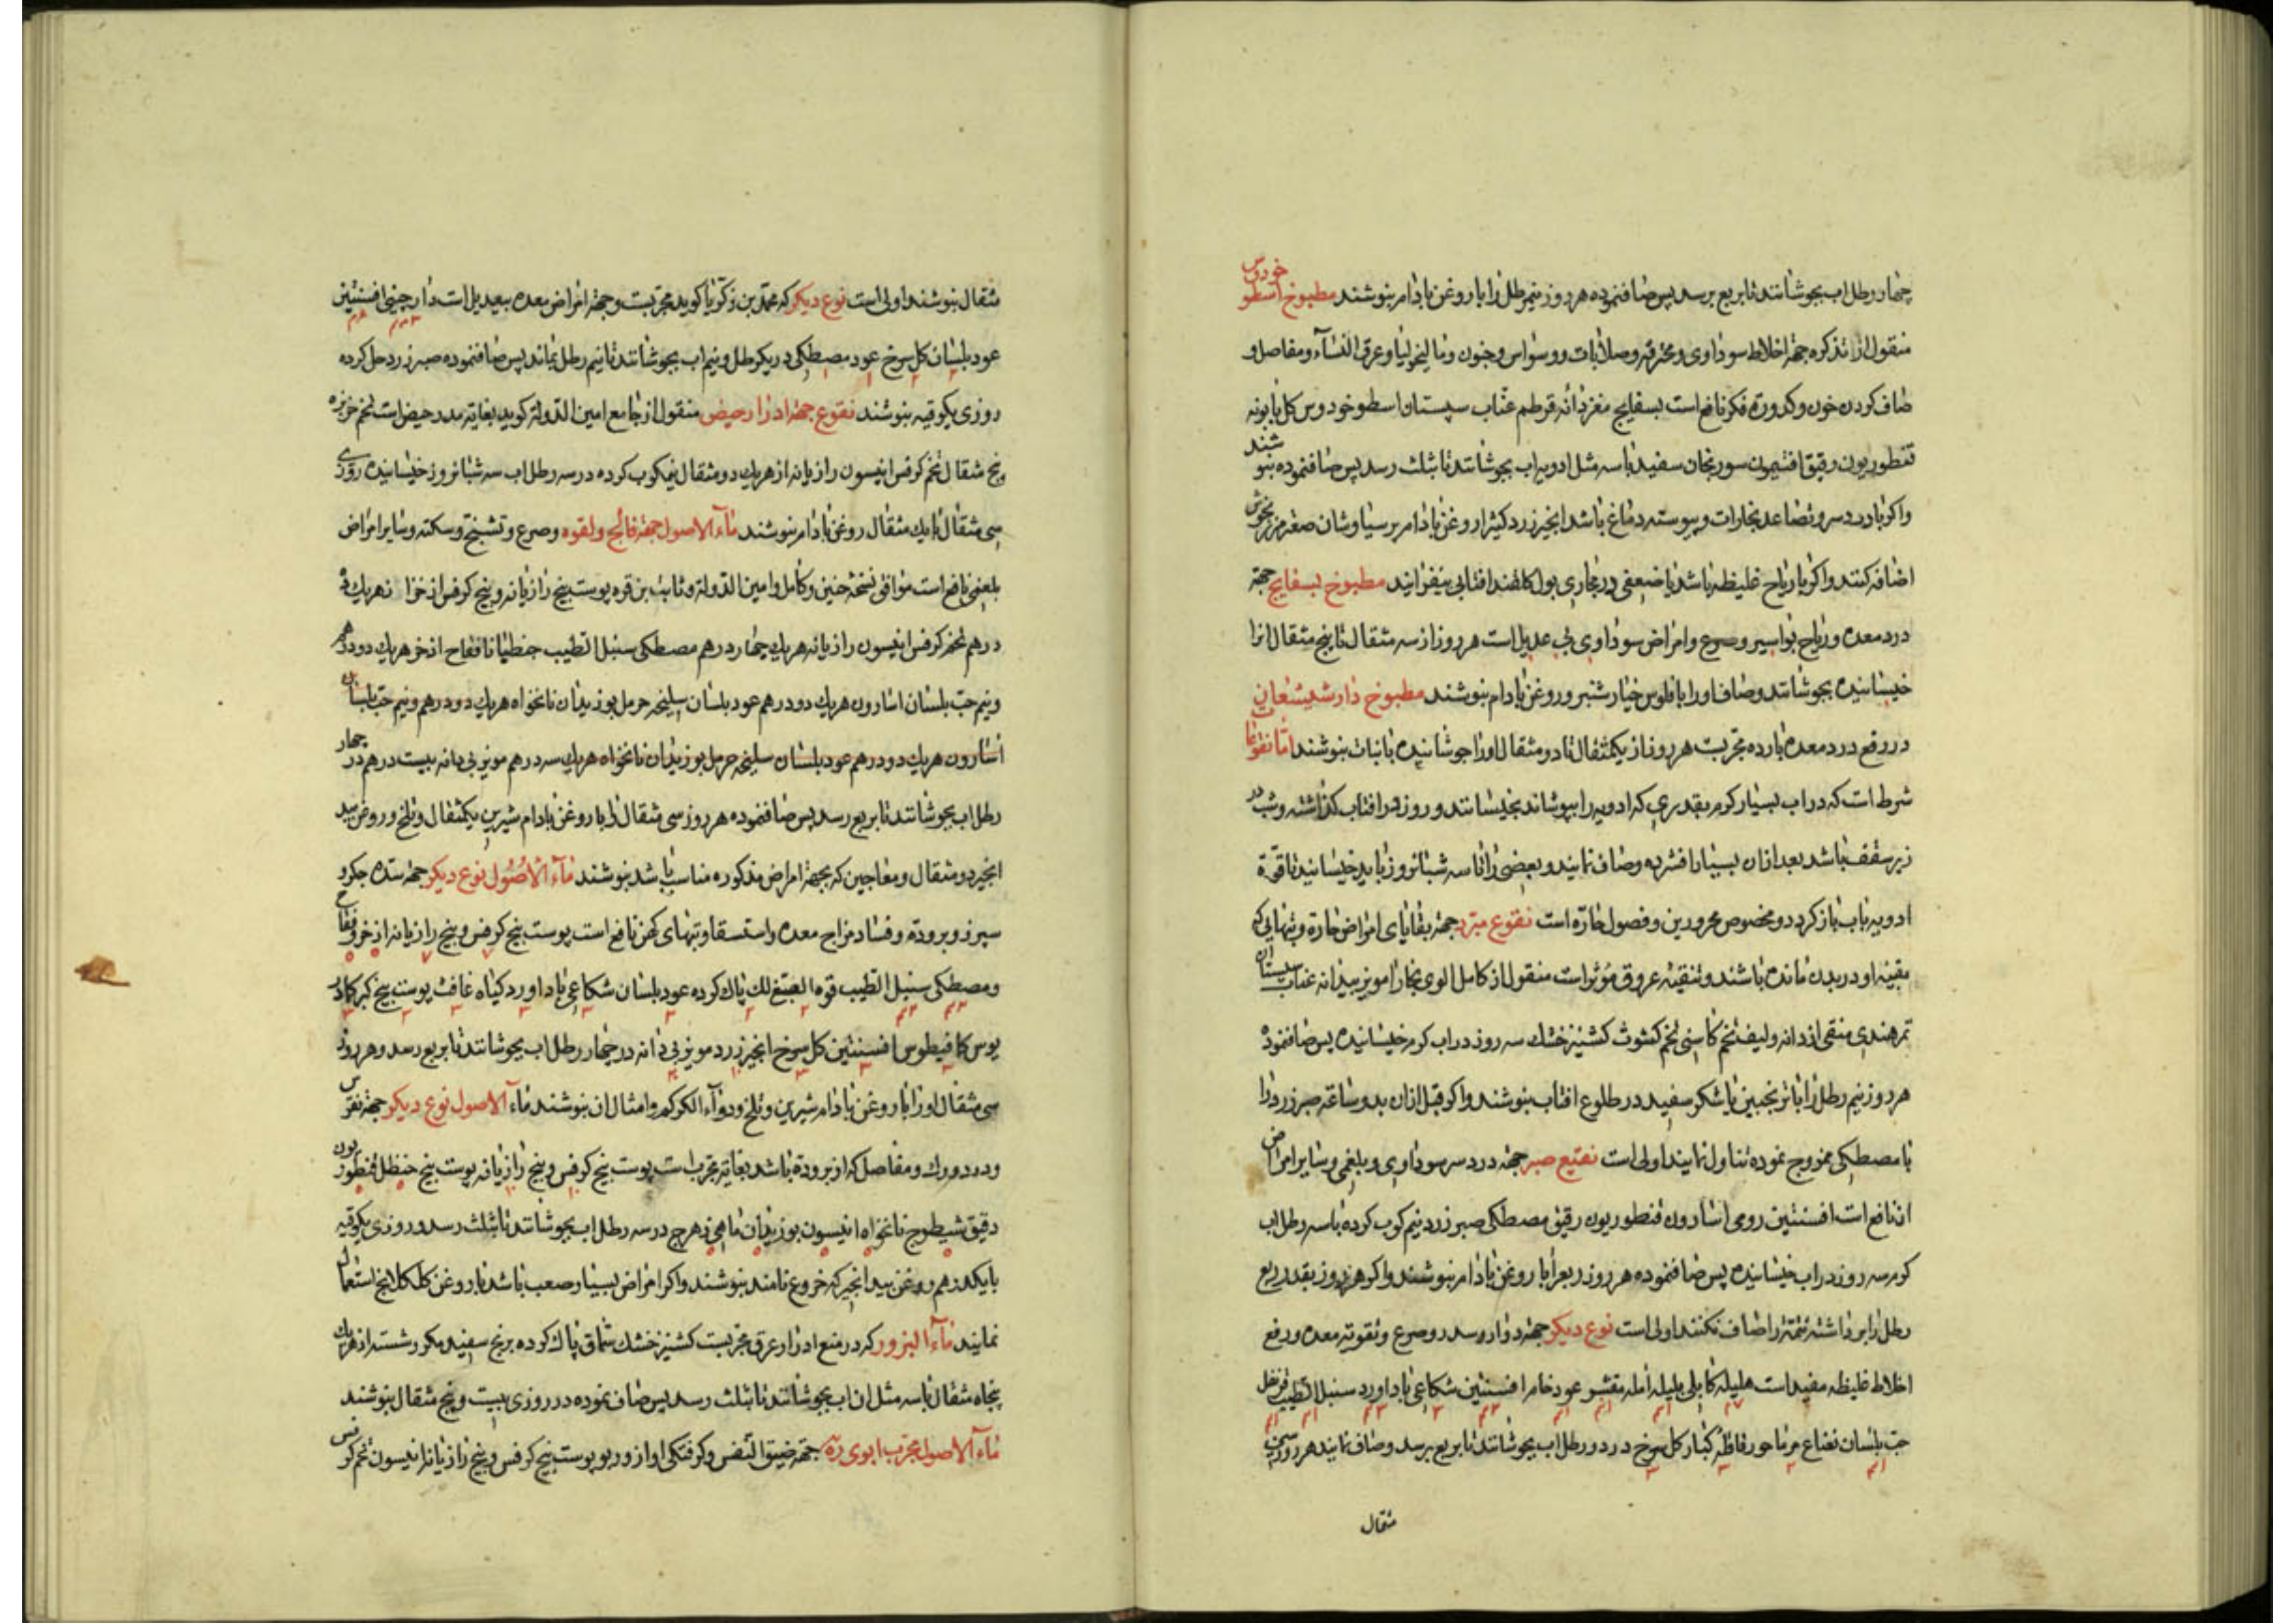 چهار رطل اب بجوشانند تا بربع برسد پس صاف نموده هر روز نیم رطل را با روغن بادام بنوشند مطبوخ اسطوخودوس
منقول از تذکره جهة اخلاط سوداوی و محترقه و صلابات و وسواس و جنون و مالیخولیا و عرق النساء و مفاصل و
صاف کردن خون و کدورة فکر نافع است بسفایج مغز دانه قرطم عناب سپستان اسطوخودوس کل بابونه
قنطوریون رقیق افتیمون سورنجان سفید با سه مثل ادویه اب بجوشانند تا بثلث رسد پس صاف نموده بنوشند
واکر با درد سر و تصاعد بخارات و پیوسته دماغ باشد انجیر زرد کثیرا روغن بادام پرسیاوشان صعتر مرزنجوش
اضافه کنند واکر با ریاح غلیظه باشد یا ضعفی در مجاری بول کاغذ افتابی بیفزایند مطبوخ بسفایج جهة
درد معده و ریاح بواسیر و صرع و امراض سوداوی بی عدیل است هر روز از سه مثقال تا پنج مثقال انرا
خیسانیده بجوشانند و صاف اورا با فلوس خیارشنبر و روغن بادام بنوشند مطبوخ دارشیشعان
در رفع درد معده بارده مجربست هر روز از یکمثقال تا دو مثقال اورا جوشانیده با نبات بنوشند اما نقوعات
شرط است که در اب بسیار کرم بقدری که ادویه را بپوشاند بخیسانند و روز در افتاب کذاشته و شب در
زیر سقف باشد بعد ازان بسیار افشرده و صاف نمایند و بعضی را تا سه شبانروز باید خیسانید تا قوة
ادویه باب باز کردد و مخصوص محرورین و فصول حاره است نقوع مبرد جهة بقایای امراض حاره و تبهایی که
بقیه او در بدن مانده باشند و تنقیه عروق مؤثر است منقول از کامل الوی بخارا مویز بیدانه عناب سپستان
تمرهندی منقی از دانه و لیف تخم کاسنی تخم کشوث کشنیز خشک سه روز در اب کرم خیسانیده پس صاف نموده
هر روز نیم رطل را با ترنجبین یا شکر سفید در طلوع افتاب بنوشند واکر قبل ازان بدو ساعة صبر زرد را
با مصطکی ممزوج نموده تناول نمایند اولی است نقیع صبر جهة درد سر سوداوی و بلغمی و سایر امراض
ان نافع است افسنتین رومی اسارون قنطوریون رقیق مصطکی صبر زرد نیم کوب کرده با سه رطل اب
کرم سه روز در اب خیسانیده پس صاف نموده هر روز ربعرا با روغن بادام بنوشند واکر هر روز بقدر ربع
رطل را برداشته تتمه را صاف نکنند اولی است نوع دیکر جهة دوار و سدر و صرع و تقویة معده و رفع
اخلاط غلیظه مفید است هلیله کابلی بلیله امله مقشر عود خام افسنتین شکاعی باداورد سنبل الطیب قرنفل
حب بلسان نعناع مرماحور قاقله کبار کل سرخ در دو رطل اب بجوشانند تا بربع برسد و صاف نمایند هر روز سی
مثقال
مثقال بنوشند اولی است نوع دیکر که محمد بن زکریا کوید مجربست و جهة امراض معده بیعدیل است دارچینی افسنتین
عود بلسان کل سرخ عود مصطکی در یکرطل و نیم اب بجوشانند تا نیم رطل بماند پس صاف نموده صبر زرد حل کرده
روزی یکوقیه بنوشند نقوع جهة ادرار حیض منقول از جامع امین الدوله کوید بغایة مدر حیض است تخم خربزه
پنج مثقال تخم کرفس انیسون رازیانه از هریک دو مثقال نیمکوب کرده در سه رطل اب سه شبانروز خیسانیده روزی
سی مثقال با یک مثقال روغن بادام بنوشند ماء الاصول جهة فالج و لقوه و صرع و تشنج و سکته و سایر امراض
بلغمی نافع است موافق نسخه حنین و کامل و امین الدوله و ثابت بن قره پوست بیخ رازیانه و بیخ کرفس اذخر از هریک ده
درهم تخم کرفس انیسون رازیانه هریک چهار درهم مصطکی سنبل الطیب جنطیانا فقاح اذخر هریک دو درهم
و نیم حب بلسان اسارون هریک دو درهم عود بلسان سلیخه حرمل بوزیدان نانخواه هریک دو درهم و نیم حب بلسان
اسارون هریک دو درهم عود بلسان سلیخه حرمل بوزیدان نانخواه هریک سه درهم مویز بی دانه بیست درهم در چهار
رطل اب بجوشانند تا بربع رسد پس صاف نموده هر روز سی مثقال را با روغن بادام شیرین یکمثقال و تلخ و روغن بید
انجیر دو مثقال و معاجین که بجهة امراض مذکوره مناسب باشد بنوشند ماء الاصول نوع دیکر جهة سده جکر و
سپرز و برودة و فساد مزاج معده و استسقا و تبهای کهن نافع است پوست بیخ کرفس و بیخ رازیانه اذخر و فقاح
و مصطکی سنبل الطیب قوه الصبغ لک پاک کرده عود بلسان شکاعی باداورد کیاه غافث پوست بیخ کبر کمادر
یوس کمافیطوس افسنتین کل سرخ انجیر زرد مویز بی دانه در چهار رطل اب بجوشانند تا بربع رسد و هر روز
سی مثقال اورا با روغن بادام شیرین و تلخ و دواء الکرکم و امثال ان بنوشند ماء الاصول نوع دیکر جهة نقرس
و درد ورک و مفاصل که از برودة باشد بغایة مجرب است پوست بیخ کرفس و بیخ رازیانه پوست بیخ حنظل قنطوریون
دقیق شیطرج نانخواه انیسون بوزیدان ماهی زهرج در سه رطل اب بجوشانند تا بثلث رسد و روزی یکوقیه
با یکدرهم روغن بید انجیر که خروع نامند بنوشند واکر امراض بسیار صعب باشد با روغن کلکلانج استعمال
نمایند ماء البزور که در منع ادرار عرق مجربست کشنیز خشک سماق پاک کرده برنج سفید مکرر شسته از هریک
پنجاه مثقال با سه مثل ان اب بجوشانند تا بثلث رسد پس صاف نموده در روزی بیست و پنج مثقال بنوشند
ماء الاصول مجرب ابوی ره جهة ضیق النفس و کرفتکی اواز و ربو پوست بیخ کرفس و بیخ رازیانه انیسون تخم کرفس